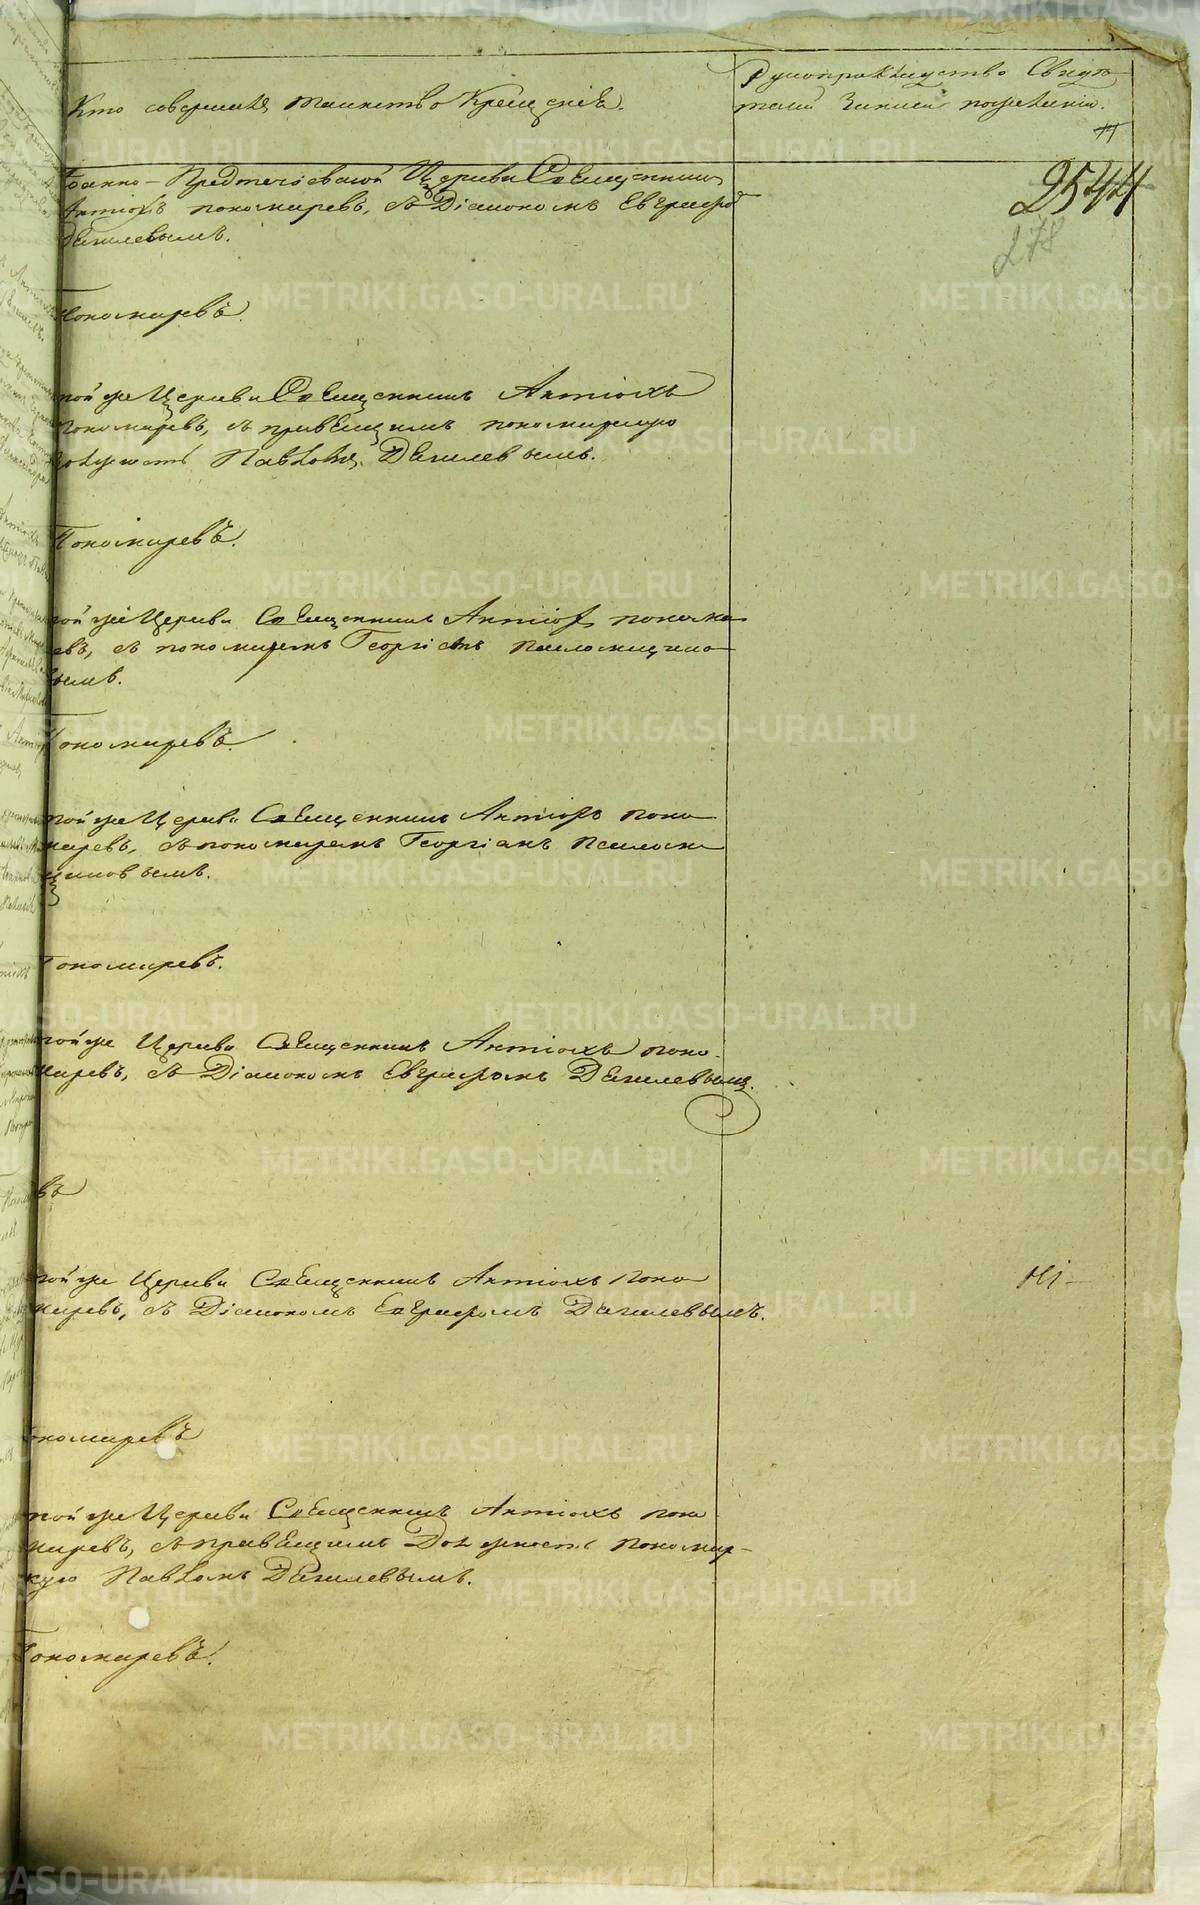 Кто совершалъ таинство Крещенія.
Рукоприкладство Свидѣ-
телей записи по желанію.
2544
278
Іоанно-Предтечіевской Церкви Священникъ
Антіохъ Пономаревъ, съ Діакономъ Евграфо
Дягилевымъ.
Пономаревъ.
той же Церкви Священникъ Антіохъ
Пономаревъ, съ правящимъ пономарскую
должность Павломъ Дягилевымъ.
Пономаревъ.
той же Церкви Священникъ Антіохъ Понома
евъ, съ пономаремъ Георгіемъ
вымъ.
Пономаревъ.
той же Церкви Священникъ Антіохъ Поно
маревъ, съ пономаремъ Георгіемъ
Пономаревъ.
той же Церкви Священникъ Антіохъ Поно-
маревъ, съ Діакономъ Евграфомъ Дягилевымъ.
въ
той же Церкви Священникъ Антіохъ Поно
маревъ, съ Діакономъ Евграфомъ Дягилевымъ.
ономаревъ
той же Церкви Священникъ Антіохъ Поно
маревъ, съ правящимъ Должность Пономар-
скую Павломъ Дягилевымъ.
Пономаревъ.